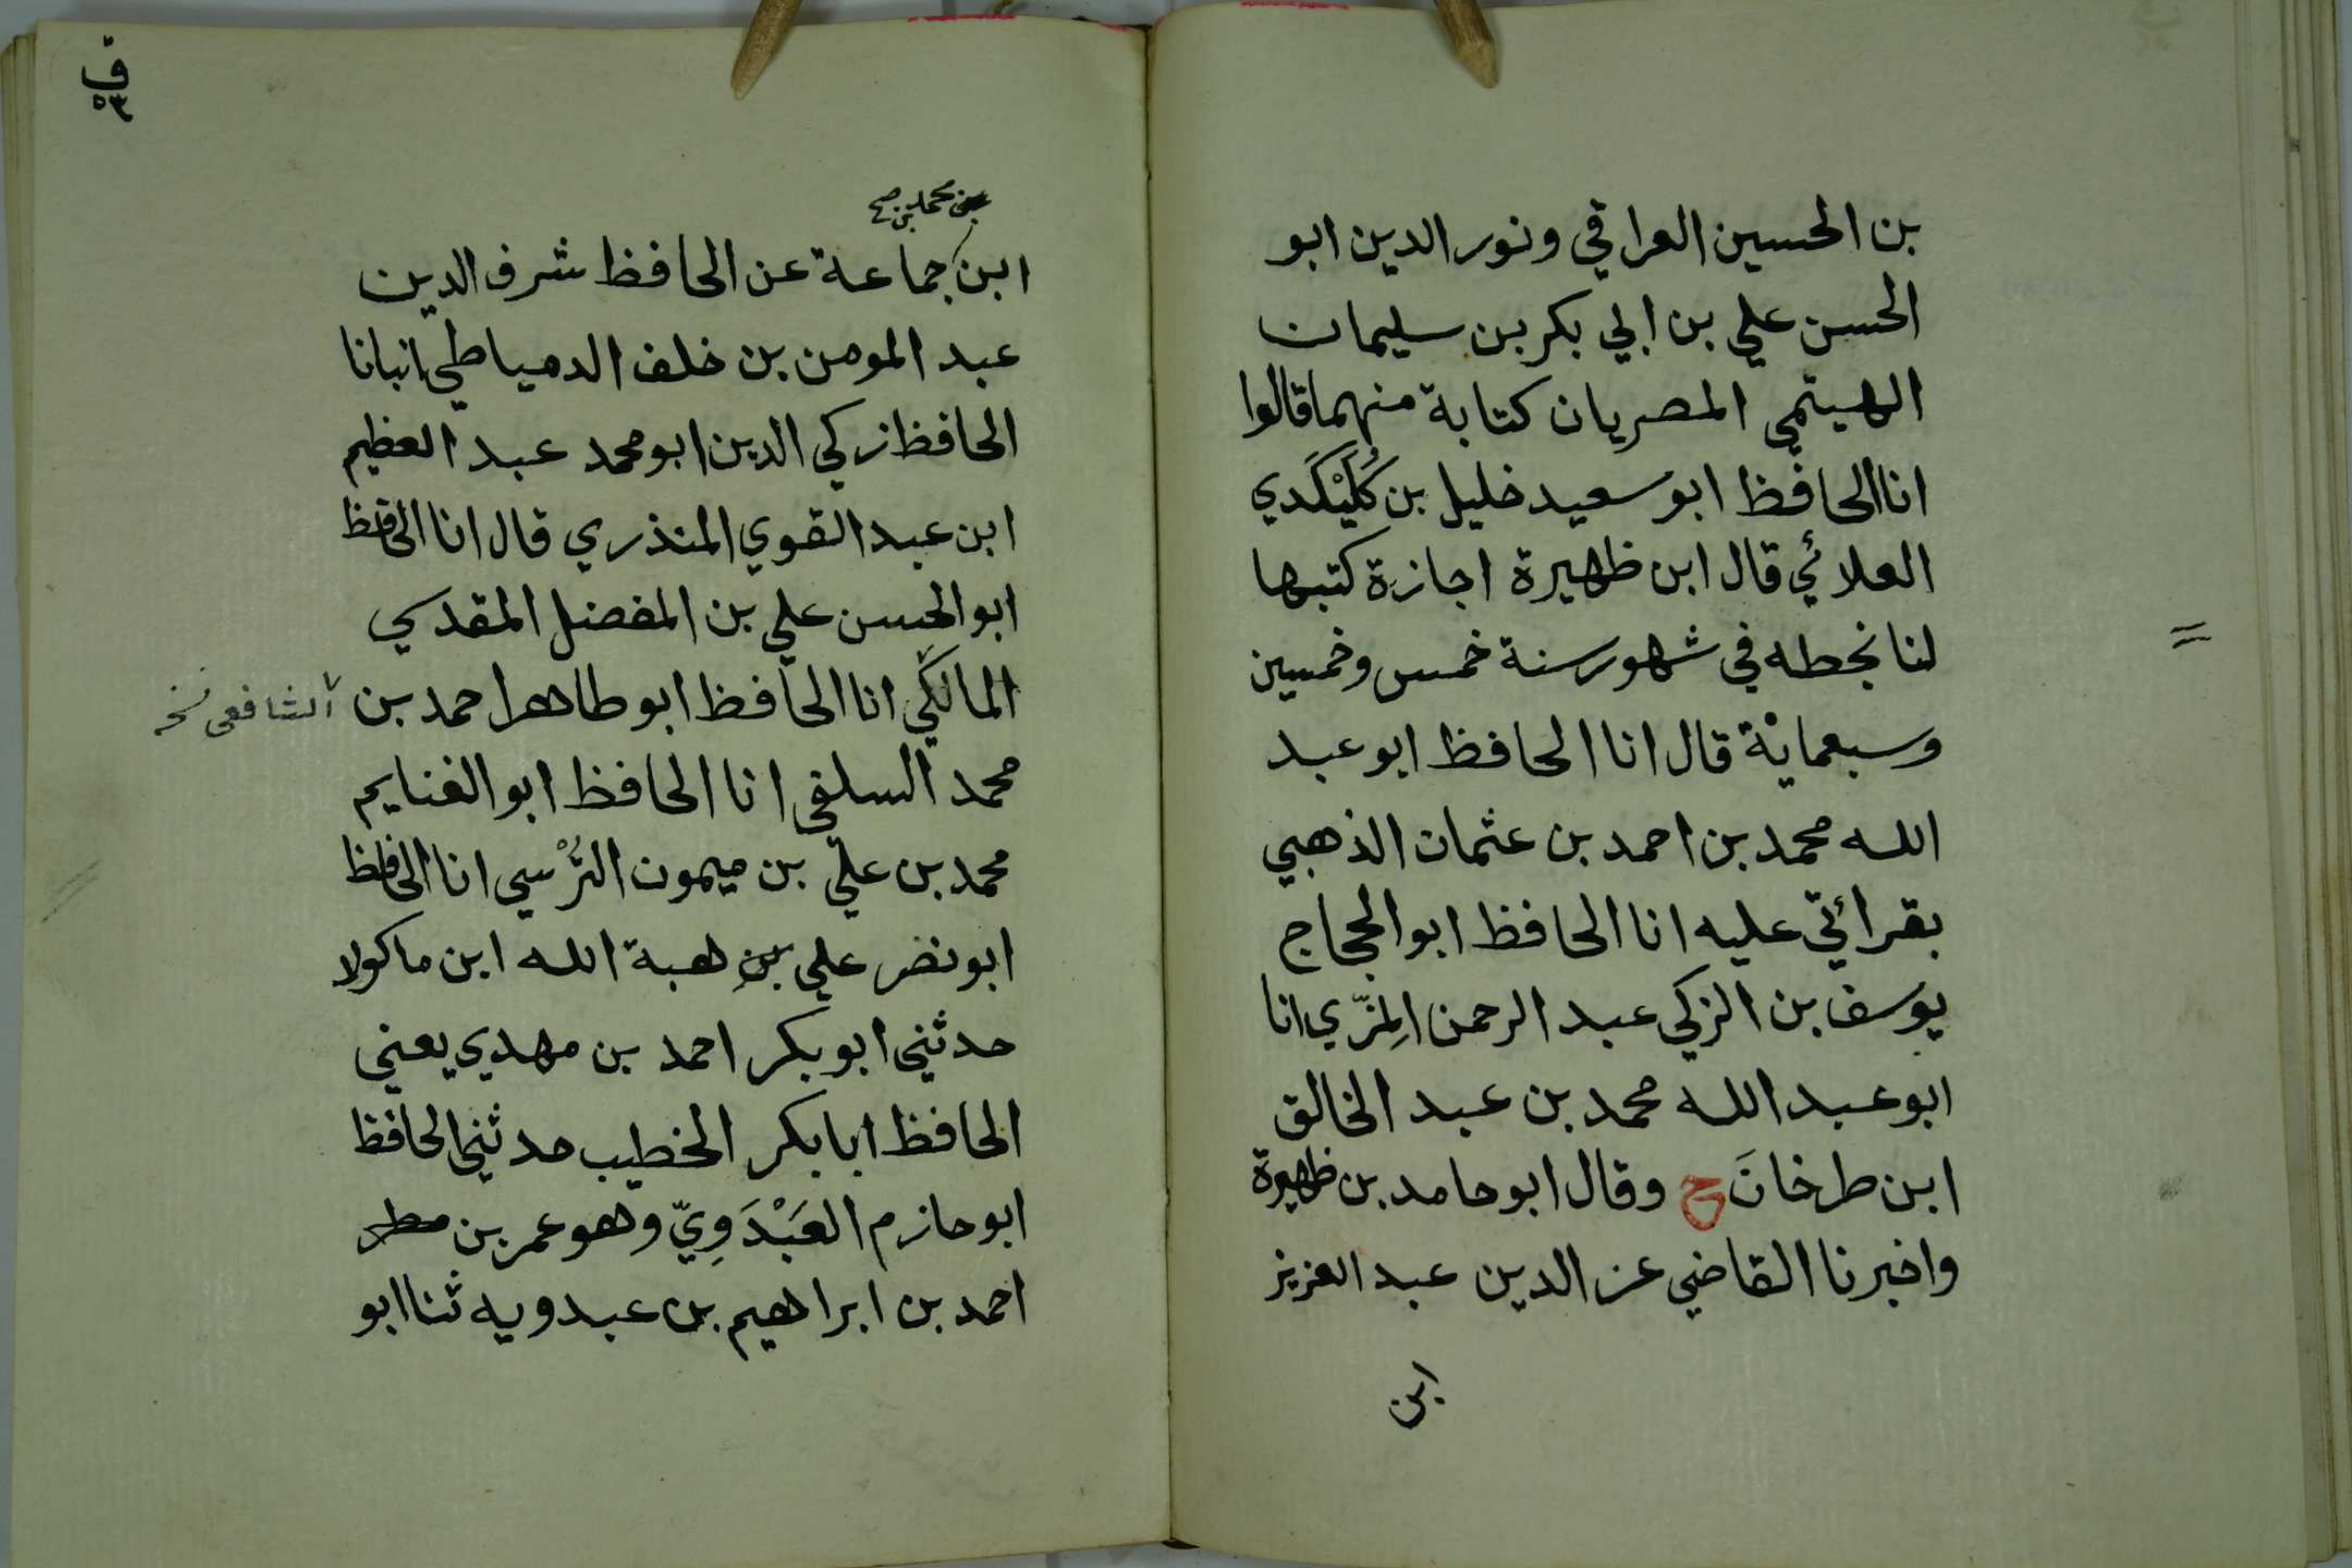 بن الحسين العراقي ونور الدين ابو
الحسن علي بن ابي بكر بن سليمان
الهيتمي المصريان كتابة منهما قالوا
انا الحافظ ابو سعيد خليل بن كَيْكَلَدي
العلائي قال ابن ظهيرة اجازة كتبها
لنا بخطه في شهور سنة خمس وخمسين
وسبعمائة قال انا الحافظ ابو عبد
الله محمد بن احمد بن عثمان الذهبي
بقرائتي عليه انا الحافظ ابو الحجاج
يوسف بن الزكي عبد الرحمن المِزّي انا
ابو عبد الله محمد بن عبد الخالق
ابن طرخانَ ح وقال ابو حامد بن ظهيرة
واخبرنا القاضي عز الدين عبد العزيز
ابن
ق
٥٣
بن محمد بن صح
ابن جماعة عن الحافظ شرف الدين
عبد المومن بن خلف الدمياطي انبانا
الحافظ زكي الدين ابو محمد عبد العظيم
ابن عبد القوي المنذري قال انا الحافظ
ابو الحسن علي بن المفضل المقدسي
المالكي انا الحافظ ابو طاهر احمد بن
الشافعي نخ
محمد السلفي انا الحافظ ابو الغنايم
محمد بن علي بن ميمون النَرْسي انا الحافظ
ابو نصر علي بن هبة الله ابن ماكولا
حدثني ابو بكر احمد بن مهدي يعني
الحافظ ابا بكر الخطيب حدثني الحافظ
ابو حازم العَبْدَوِيّ وهو عمر بن
احمد بن ابراهيم بن عبدويه ثنا ابو